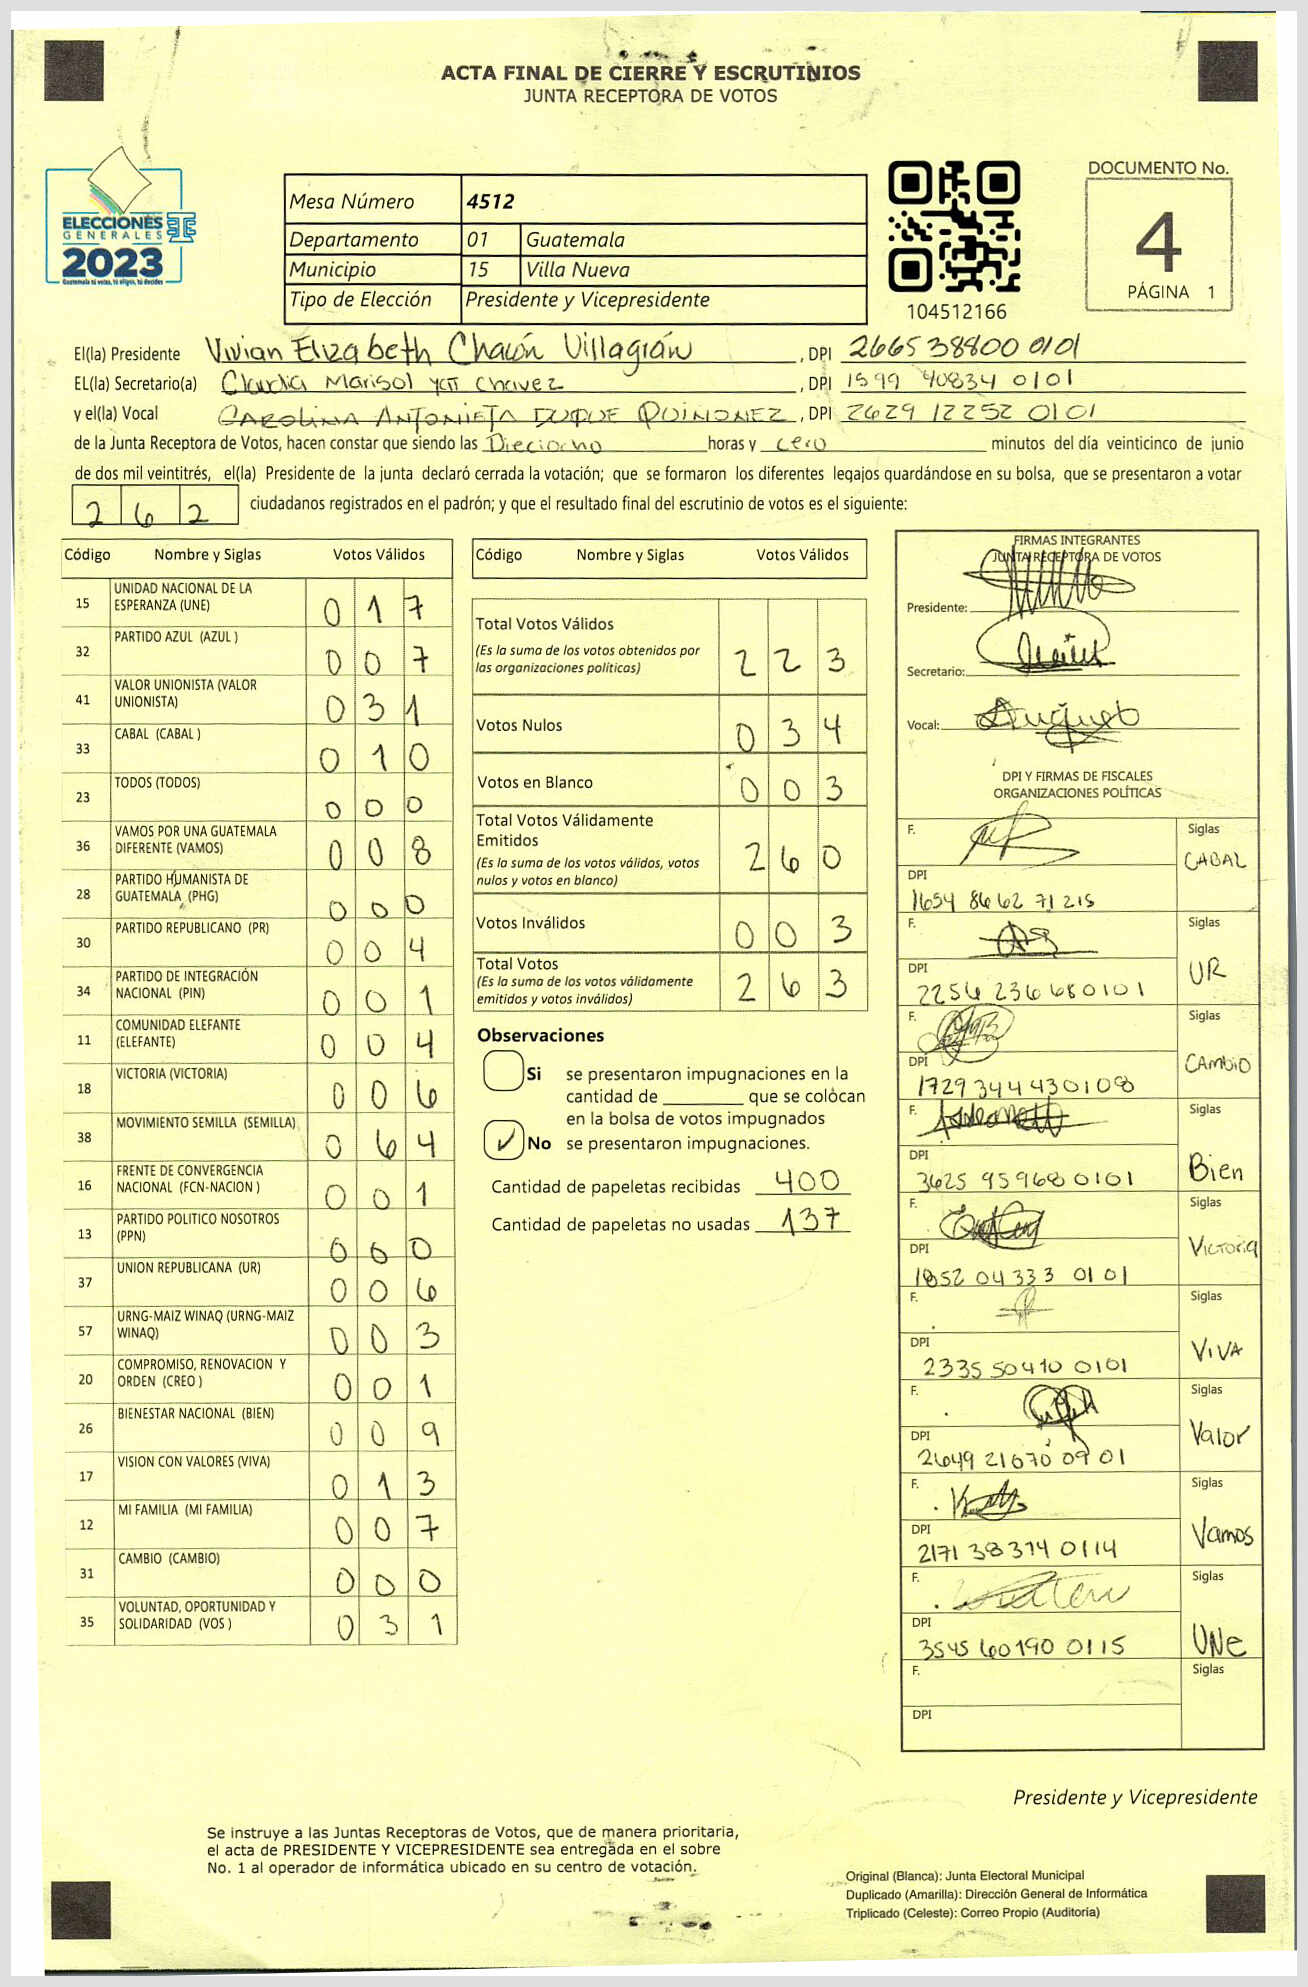 ACTA FINAL DE CIERRE Y ESCRUTINIOS
JUNTA RECEPTORA DE VOTOS
ELECCIONES
GENERALES
2023
Guatemala tú votas, tú eliges, tú decides
Mesa Número 4512
Departamento 01 Guatemala
Municipio 15 Villa Nueva
Tipo de Elección Presidente y Vicepresidente
104512166
DOCUMENTO No.
4
PÁGINA 1
El(la) Presidente Vivian Elizabeth Chacón Villagrán , DPI 266538800 0101
EL(la) Secretario(a) Claudia Marisol Chavez , DPI 1599 40834 0101
y el(la) Vocal CAROLINA ANTONIETA DUQUE QUINONEZ , DPI 2629 12252 0101
de la Junta Receptora de Votos, hacen constar que siendo las Dieciocho horas y cero minutos del día veinticinco de junio
de dos mil veintitrés, el(la) Presidente de la junta declaró cerrada la votación; que se formaron los diferentes legajos guardándose en su bolsa, que se presentaron a votar
262 ciudadanos registrados en el padrón; y que el resultado final del escrutinio de votos es el siguiente:
Código Nombre y Siglas Votos Válidos
15 UNIDAD NACIONAL DE LA ESPERANZA (UNE) 017
32 PARTIDO AZUL (AZUL ) 007
41 VALOR UNIONISTA (VALOR UNIONISTA) 031
33 CABAL (CABAL ) 010
23 TODOS (TODOS) 000
36 VAMOS POR UNA GUATEMALA DIFERENTE (VAMOS) 008
28 PARTIDO HUMANISTA DE GUATEMALA (PHG) 000
30 PARTIDO REPUBLICANO (PR) 004
34 PARTIDO DE INTEGRACIÓN NACIONAL (PIN) 001
11 COMUNIDAD ELEFANTE (ELEFANTE) 004
18 VICTORIA (VICTORIA) 006
38 MOVIMIENTO SEMILLA (SEMILLA) 064
16 FRENTE DE CONVERGENCIA NACIONAL (FCN-NACION ) 001
13 PARTIDO POLITICO NOSOTROS (PPN) 000
37 UNION REPUBLICANA (UR) 006
57 URNG-MAIZ WINAQ (URNG-MAIZ WINAQ) 003
20 COMPROMISO, RENOVACION Y ORDEN (CREO ) 001
26 BIENESTAR NACIONAL (BIEN) 009
17 VISION CON VALORES (VIVA) 013
12 MI FAMILIA (MI FAMILIA) 007
31 CAMBIO (CAMBIO) 000
35 VOLUNTAD, OPORTUNIDAD Y SOLIDARIDAD (VOS ) 031
Código Nombre y Siglas Votos Válidos
Total Votos Válidos 223
(Es la suma de los votos obtenidos por
las organizaciones políticas)
Votos Nulos 034
Votos en Blanco 003
Total Votos Válidamente
Emitidos 260
(Es la suma de los votos válidos, votos
nulos y votos en blanco)
Votos Inválidos 003
Total Votos 263
(Es la suma de los votos válidamente
emitidos y votos inválidos)
Observaciones
Si se presentaron impugnaciones en la
cantidad de ________ que se colócan
en la bolsa de votos impugnados
✓ No se presentaron impugnaciones.
Cantidad de papeletas recibidas 400
Cantidad de papeletas no usadas 137
FIRMAS INTEGRANTES
JUNTA RECEPTORA DE VOTOS
Presidente:
Secretario:
Vocal:
DPI Y FIRMAS DE FISCALES
ORGANIZACIONES POLÍTICAS
F. Siglas CABAL
DPI 1654 8662 71 215
F. Siglas UR
DPI 2256 236680101
F. Siglas CAmbio
DPI 1729344430108
F. Siglas Bien
DPI 3625 959680101
F. Siglas Victoria
DPI 1852 04333 0101
F. Siglas VIVA
DPI 2335 50410 0101
F. Siglas Valor
DPI 2649 21070 0901
F. Siglas Vamos
DPI 2171 38374 0114
F. Siglas UNe
DPI 3545 60190 0115
F. Siglas
DPI
Presidente y Vicepresidente
Se instruye a las Juntas Receptoras de Votos, que de manera prioritaria,
el acta de PRESIDENTE Y VICEPRESIDENTE sea entregada en el sobre
No. 1 al operador de informática ubicado en su centro de votación.
Original (Blanca): Junta Electoral Municipal
Duplicado (Amarilla): Dirección General de Informática
Triplicado (Celeste): Correo Propio (Auditoría)